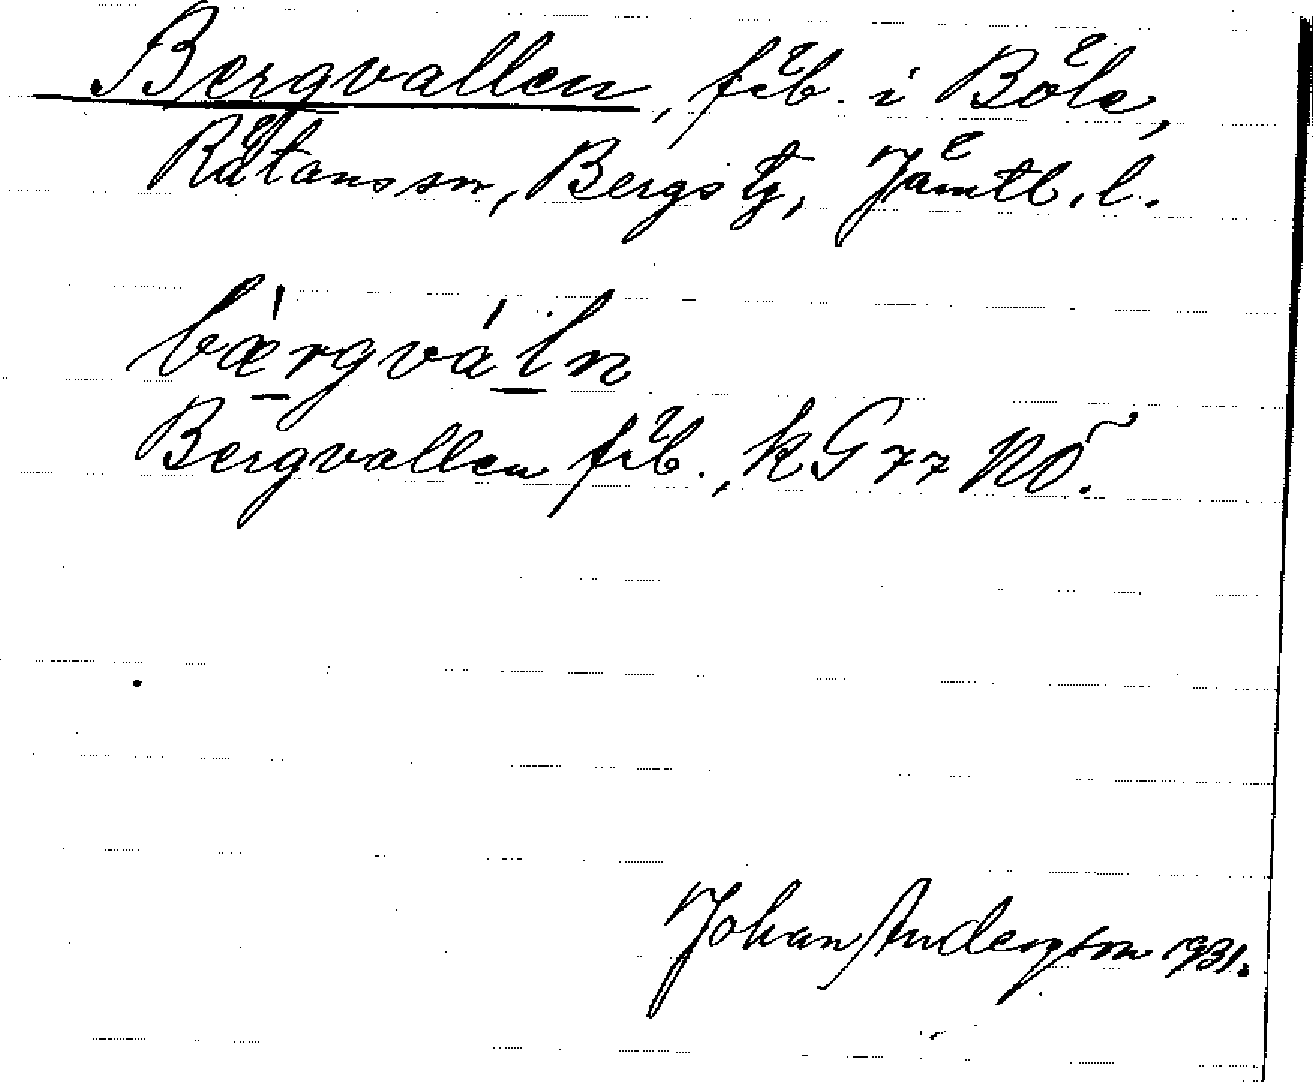 Bergvallen, fäb. i Böle,
Rätans sn, Bergs tg, Jämtl. l.
bærgváln
Bergvallen fäb., kG 77 NÖ.
Johan Andersson 1931.